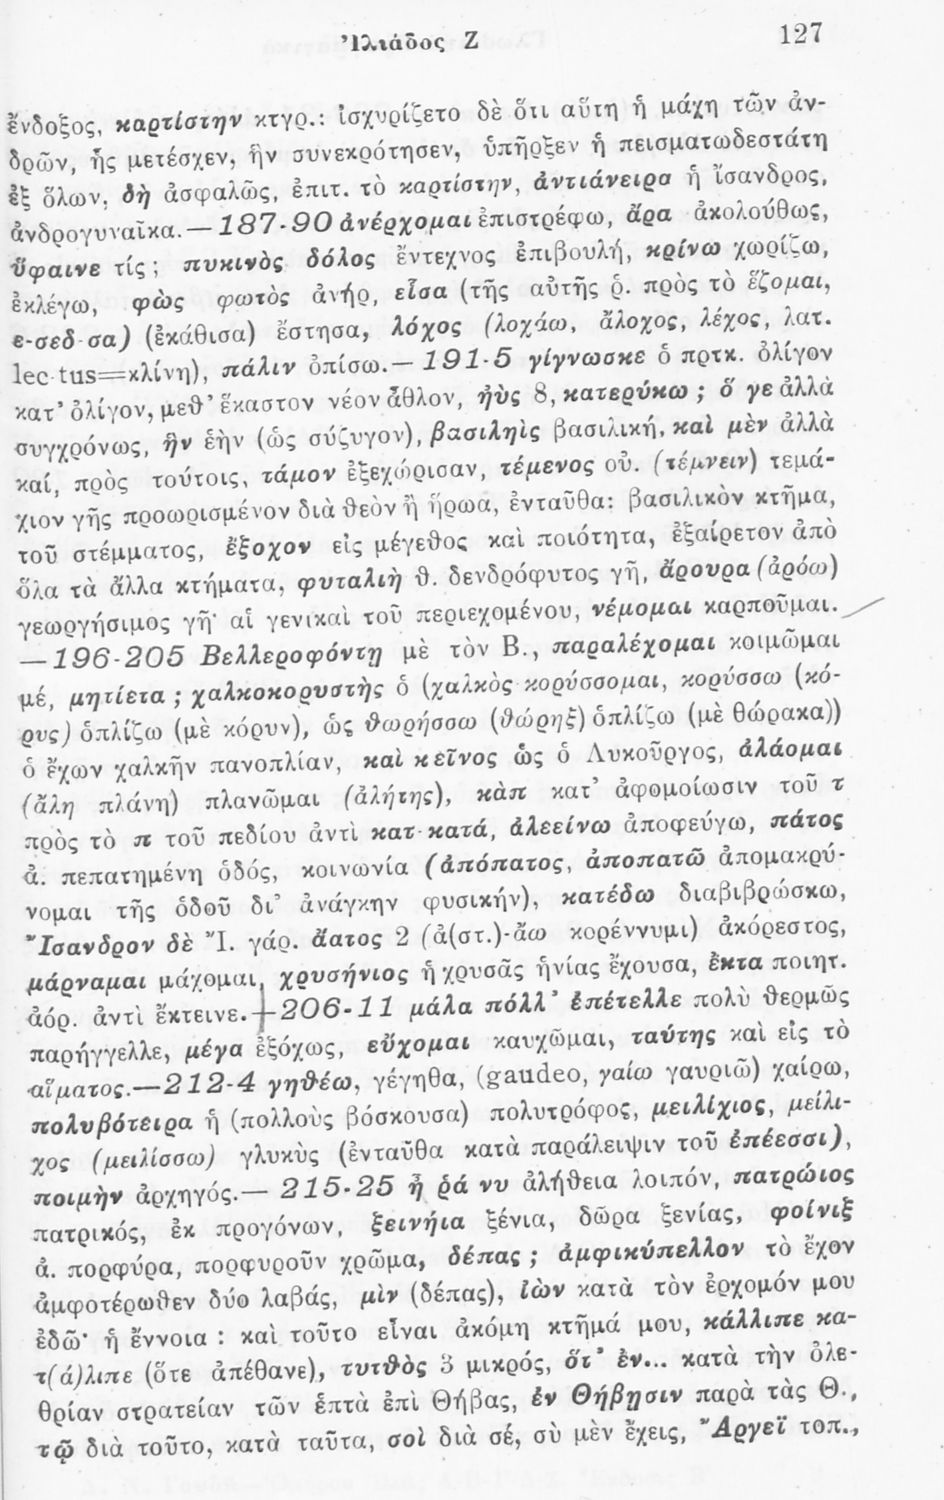 Ἰλιάδος Ζ 127
ἔνδοξος, καρτίστην κτγρ.: ἰσχυρίζετο δὲ ὅτι αὕτη ἡ μάχη τῶν ἀν-
δρῶν, ἧς μετέσχεν, ἣν συνεκρότησεν, ὑπῆρξεν ἡ πεισματωδεστάτη
ἐξ ὅλων, δὴ ἀσφαλῶς, ἐπιτ. τὸ καρτίστην, ἀντιάνειρα ἡ ἴσανδρος,
ἀνδρογυναῖκα.—187-90 ἀνέρχομαι ἐπιστρέφω, ἄρα ἀκολούθως,
ὕφαινε τίς; πυκινὸς δόλος ἔντεχνος ἐπιβουλή, κρίνω χωρίζω,
ἐκλέγω, φὼς φωτὸς ἀνήρ, εἷσα (τῆς αὐτῆς ῥ. πρὸς τὸ ἕζομαι,
ε-σεδ-σα) (ἐκάθισα) ἔστησα, λόχος (λοχάω, ἄλοχος, λέχος, λατ.
lec-tus=κλίνη), πάλιν ὀπίσω.—191-5 γίγνωσκε ὁ πρτκ. ὀλίγον
κατ' ὀλίγον, μεθ' ἕκαστον νέον ἆθλον, ἠὺς 8, κατερύκω; ὅ γε ἀλλὰ
συγχρόνως, ἣν ἑὴν (ὡς σύζυγον), βασιληὶς βασιλική, καὶ μὲν ἀλλὰ
καί, πρὸς τούτοις, τάμον ἐξεχώρισαν, τέμενος οὐ. (τέμνειν) τεμά-
χιον γῆς προωρισμένον διὰ θεὸν ἢ ἥρωα, ἐνταῦθα: βασιλικὸν κτῆμα,
τοῦ στέμματος, ἔξοχον εἰς μέγεθος καὶ ποιότητα, ἐξαίρετον ἀπὸ
ὅλα τὰ ἄλλα κτήματα, φυταλιὴ θ. δενδρόφυτος γῆ, ἄρουρα (ἀρόω)
γεωργήσιμος γῆ· αἱ γενικαὶ τοῦ περιεχομένου, νέμομαι καρποῦμαι.
—196-205 Βελλεροφόντῃ μὲ τὸν Β., παραλέχομαι κοιμῶμαι
μέ, μητίετα; χαλκοκορυστὴς ὁ (χαλκὸς κορύσσομαι, κορύσσω (κό-
ρυς) ὁπλίζω (μὲ κόρυν), ὡς θωρήσσω (θώρηξ) ὁπλίζω (μὲ θώρακα))
ὁ ἔχων χαλκῆν πανοπλίαν, καὶ κεῖνος ὡς ὁ Λυκοῦργος, ἀλάομαι
(ἄλη πλάνη) πλανῶμαι (ἀλήτης), κὰπ κατ' ἀφομοίωσιν τοῦ τ
πρὸς τὸ π τοῦ πεδίου ἀντὶ κατ-κατά, ἀλεείνω ἀποφεύγω, πάτος
ἀ. πεπατημένη ὁδός, κοινωνία (ἀπόπατος, ἀποπατῶ ἀπομακρύ-
νομαι τῆς ὁδοῦ δι' ἀνάγκην φυσικήν), κατέδω διαβιβρώσκω,
Ἴσανδρον δὲ Ἴ. γάρ. ἄατος 2 (ἀ(στ.)-ἄω κορέννυμι) ἀκόρεστος,
μάρναμαι μάχομαι, χρυσήνιος ἡ χρυσᾶς ἡνίας ἔχουσα, ἔκτα ποιητ.
ἀόρ. ἀντὶ ἔκτεινε.—206-11 μάλα πόλλ' ἐπέτελλε πολὺ θερμῶς
παρήγγελλε, μέγα ἐξόχως, εὔχομαι καυχῶμαι, ταύτης καὶ εἰς τὸ
αἵματος.—212-4 γηθέω, γέγηθα, (gaudeo, γαίω γαυριῶ) χαίρω,
πολυβότειρα ἡ (πολλοὺς βόσκουσα) πολυτρόφος, μειλίχιος, μείλι-
χος (μειλίσσω) γλυκὺς (ἐνταῦθα κατὰ παράλειψιν τοῦ ἐπέεσσι),
ποιμὴν ἀρχηγός.— 215-25 ἦ ῥά νυ ἀλήθεια λοιπόν, πατρώιος
πατρικός, ἐκ προγόνων, ξεινήια ξένια, δῶρα ξενίας, φοίνιξ
ἀ. πορφύρα, πορφυροῦν χρῶμα, δέπας; ἀμφικύπελλον τὸ ἔχον
ἀμφοτέρωθεν δύο λαβάς, μὶν (δέπας), ἰὼν κατὰ τὸν ἐρχομόν μου
ἐδῶ· ἡ ἔννοια : καὶ τοῦτο εἶναι ἀκόμη κτῆμά μου, κάλλιπε κα-
τ(ά)λιπε (ὅτε ἀπέθανε), τυτθὸς 3 μικρός, ὅτ' ἐν... κατὰ τὴν ὀλε-
θρίαν στρατείαν τῶν ἑπτὰ ἐπὶ Θήβας, ἐν Θήβῃσιν παρὰ τὰς Θ.,
τῷ διὰ τοῦτο, κατὰ ταῦτα, σοὶ διὰ σέ, σὺ μὲν ἔχεις, Ἄργεϊ τοπ.,